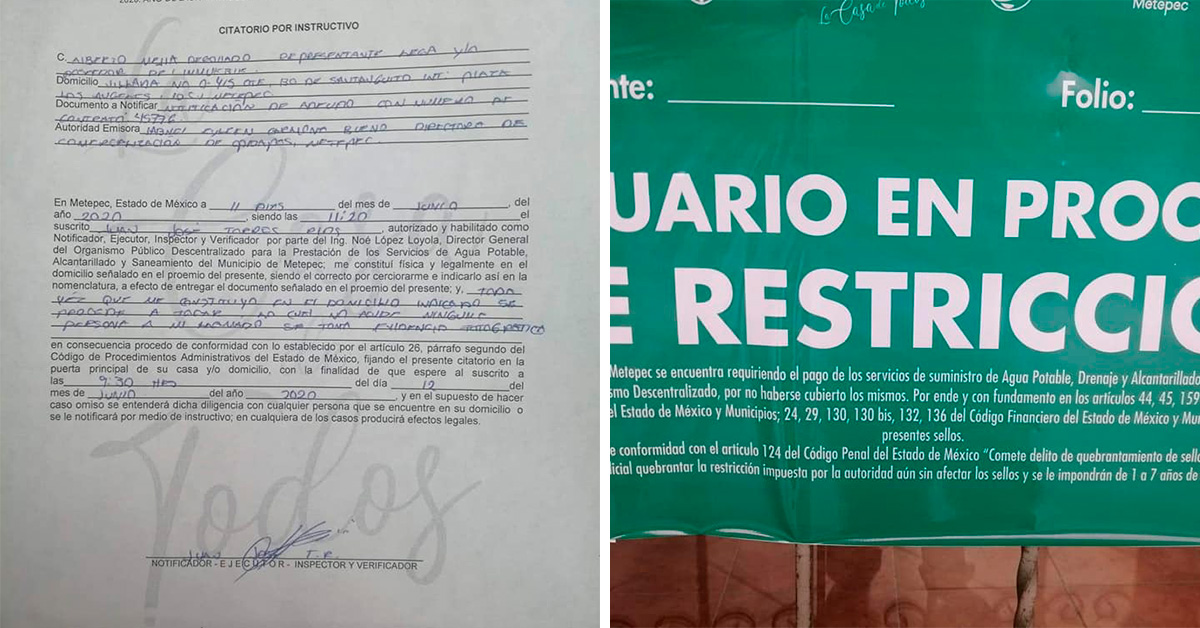 CITATORIO POR INSTRUCTIVO
C. ALBERTO MEJIA REPRESENTANTE LEGA Y/O
POSEEDOR DE INMUEBLE.
Domicilio VILLADA NO 0-415 OTE INT: PLAZA
LOS ANGELES, METEPEC
Documento a Notificar NOTIFICACION DE ADEUDO CON NUMERO DE
CONTRATO 45776
Autoridad Emisora CARMONA BUENO DIRECTORA DE
COMERCIALIZACION DE OPDAPAS, METEPEC.
En Metepec, Estado de México a 11 DIAS del mes de JUNIO, del
año 2020, siendo las 11:20 el
suscrito JUAN JOSE TORRES RIOS, autorizado y habilitado como
Notificador, Ejecutor, Inspector y Verificador por parte del Ing. Noé López Loyola, Director General
del Organismo Público Descentralizado para la Prestación de los Servicios de Agua Potable,
Alcantarillado y Saneamiento del Municipio de Metepec; me constituí física y legalmente en el
domicilio señalado en el proemio del presente, siendo el correcto por cerciorarme e indicarlo así en la
nomenclatura, a efecto de entregar el documento señalado en el proemio del presente; y, TODA
VEZ QUE ME CONSTITUYO EN EL DOMICILIO INDICADO SE
PROCEDE A TOCAR, NO
PERSONA A MI LLAMADO SE TOMA EVIDENCIA FOTOGRAFICA
en consecuencia procedo de conformidad con lo establecido por el artículo 26, párrafo segundo del
Código de Procedimientos Administrativos del Estado de México, fijando el presente citatorio en la
puerta principal de su casa y/o domicilio, con la finalidad de que espere al suscrito a
las 9:30 HRS del día 12 del
mes de JUNIO del año 2020, y en el supuesto de hacer
caso omiso se entenderá dicha diligencia con cualquier persona que se encuentre en su domicilio o
se le notificará por medio de instructivo; en cualquiera de los casos producirá efectos legales.
Todos
JUAN JOSE T.R.
NOTIFICADOR - E J E C U T O R - INSPECTOR Y VERIFICADOR
La Casa de Todos
Metepec
nte:
Folio:
UARIO EN PROC
E RESTRICCIO
Metepec se encuentra requiriendo el pago de los servicios de suministro de Agua Potable, Drenaje y Alcantarillado
smo Descentralizado, por no haberse cubierto los mismos. Por ende y con fundamento en los artículos 44, 45, 159
el Estado de México y Municipios; 24, 29, 130, 130 bis, 132, 136 del Código Financiero del Estado de México y Mu
presentes sellos.
e conformidad con el artículo 124 del Código Penal del Estado de México "Comete delito de quebrantamiento de sello
icial quebrantar la restricción impuesta por la autoridad aún sin afectar los sellos y se le impondrán de 1 a 7 años de